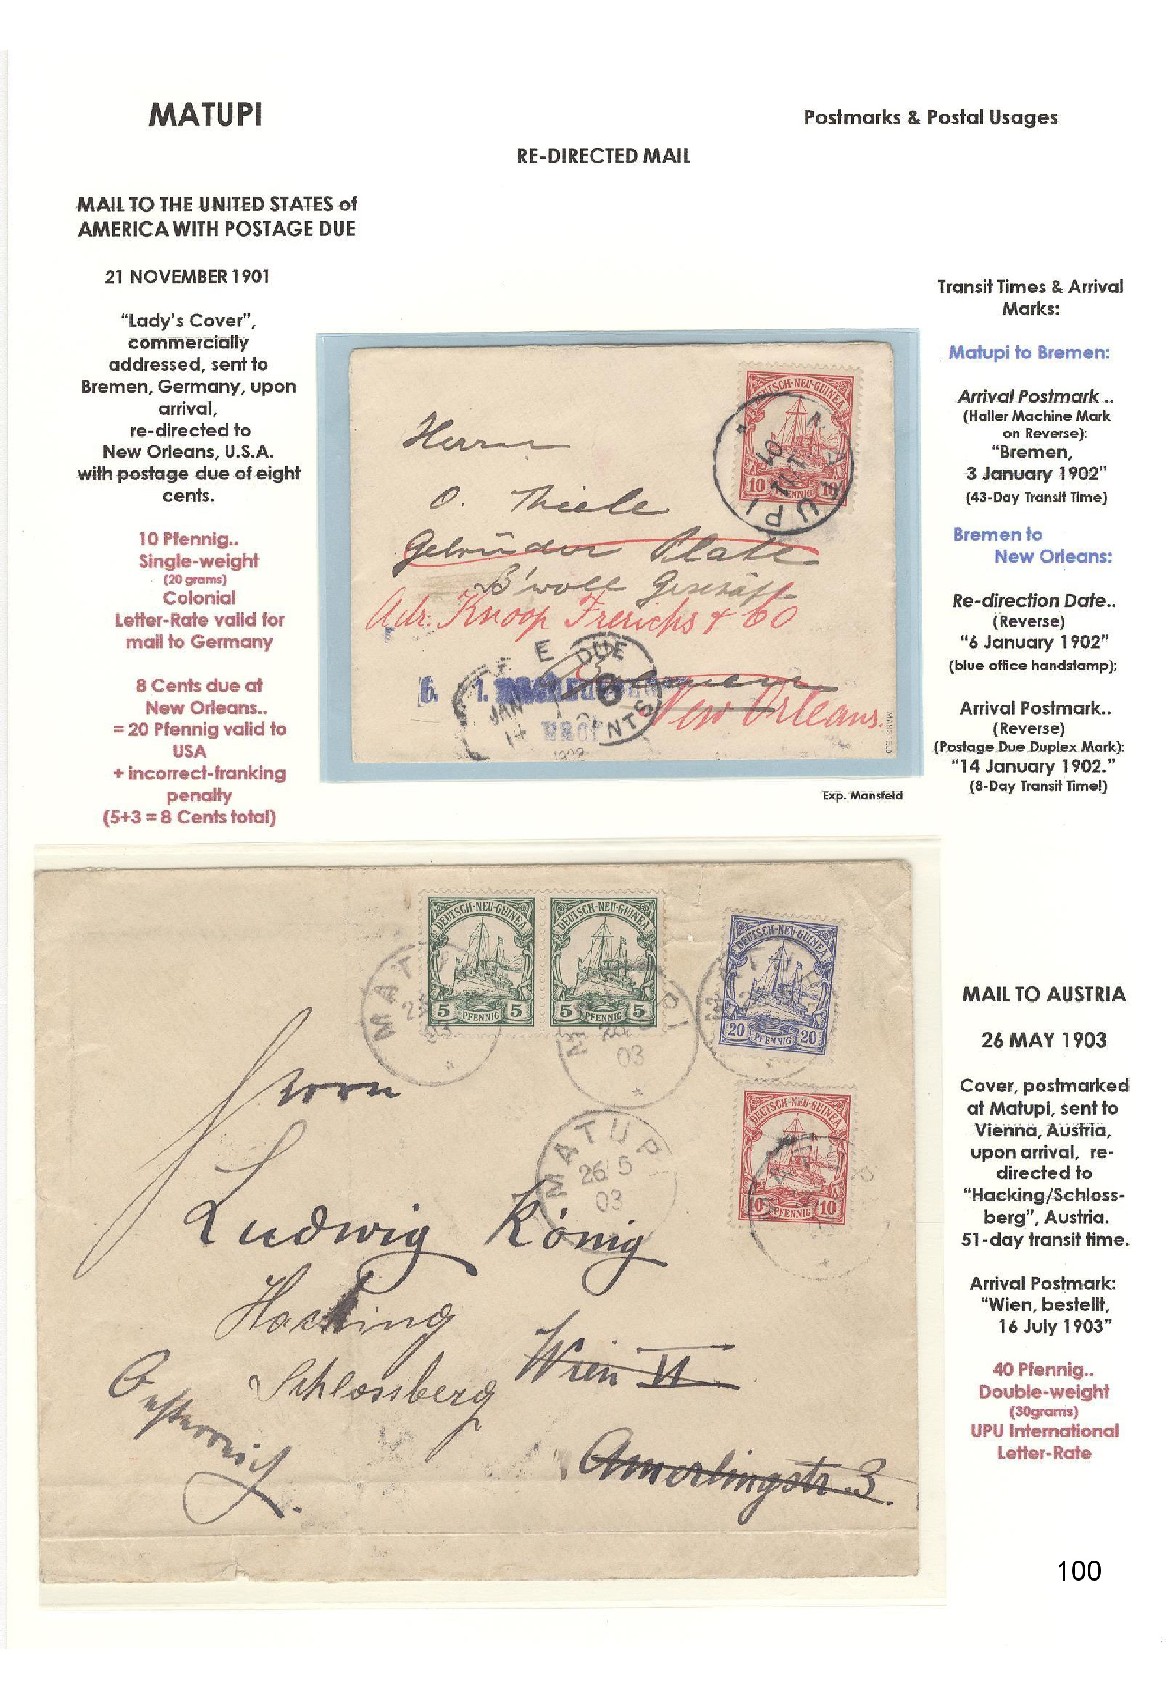 MATUPI
Postmarks & Postal Usages
RE-DIRECTED MAIL
MAIL TO THE UNITED STATES of
AMERICA WITH POSTAGE DUE
21 NOVEMBER 1901
"Lady's Cover",
commercially
addressed, sent to
Bremen, Germany, upon
arrival,
re-directed to
New Orleans, U.S.A.
with postage due of eight
cents.
10 Pfennig..
Single-weight
(20 grams)
Colonial
Letter-Rate valid for
mail to Germany
8 Cents due at
New Orleans..
= 20 Pfennig valid to
USA
+ incorrect-franking
penalty
(5+3 = 8 Cents total)
DEUTSCH-NEU-GUINEA
10 PFENNIG 10
Herrn
O. Thiele
Gebrüder Plate
B'woll Geschäft
Adr. Knoop Frerichs & Co
DUE
CENTS
JAN
14
6. 1.
New Orleans.
Exp. Mansfeld
Transit Times & Arrival
Marks:
Matupi to Bremen:
Arrival Postmark ..
(Haller Machine Mark
on Reverse):
"Bremen,
3 January 1902"
(43-Day Transit Time)
Bremen to
New Orleans:
Re-direction Date..
(Reverse)
"6 January 1902"
(blue office handstamp);
Arrival Postmark..
(Reverse)
(Postage Due Duplex Mark):
"14 January 1902."
(8-Day Transit Time!)
DEUTSCH-NEU-GUINEA
5 PFENNIG 5
DEUTSCH-NEU-GUINEA
5 PFENNIG 5
DEUTSCH-NEU-GUINEA
20 PFENNIG 20
DEUTSCH-NEU-GUINEA
10 PFENNIG 10
MATUPI
26/5
03
Herrn
Ludwig König
Hacking
Schlossberg
Wien VI
Oesterreich.
Amerlingstr. 3.
MAIL TO AUSTRIA
26 MAY 1903
Cover, postmarked
at Matupi, sent to
Vienna, Austria,
upon arrival, re-
directed to
"Hacking/Schloss-
berg", Austria.
51-day transit time.
Arrival Postmark:
"Wien, bestellt,
16 July 1903"
40 Pfennig..
Double-weight
(30grams)
UPU International
Letter-Rate
100